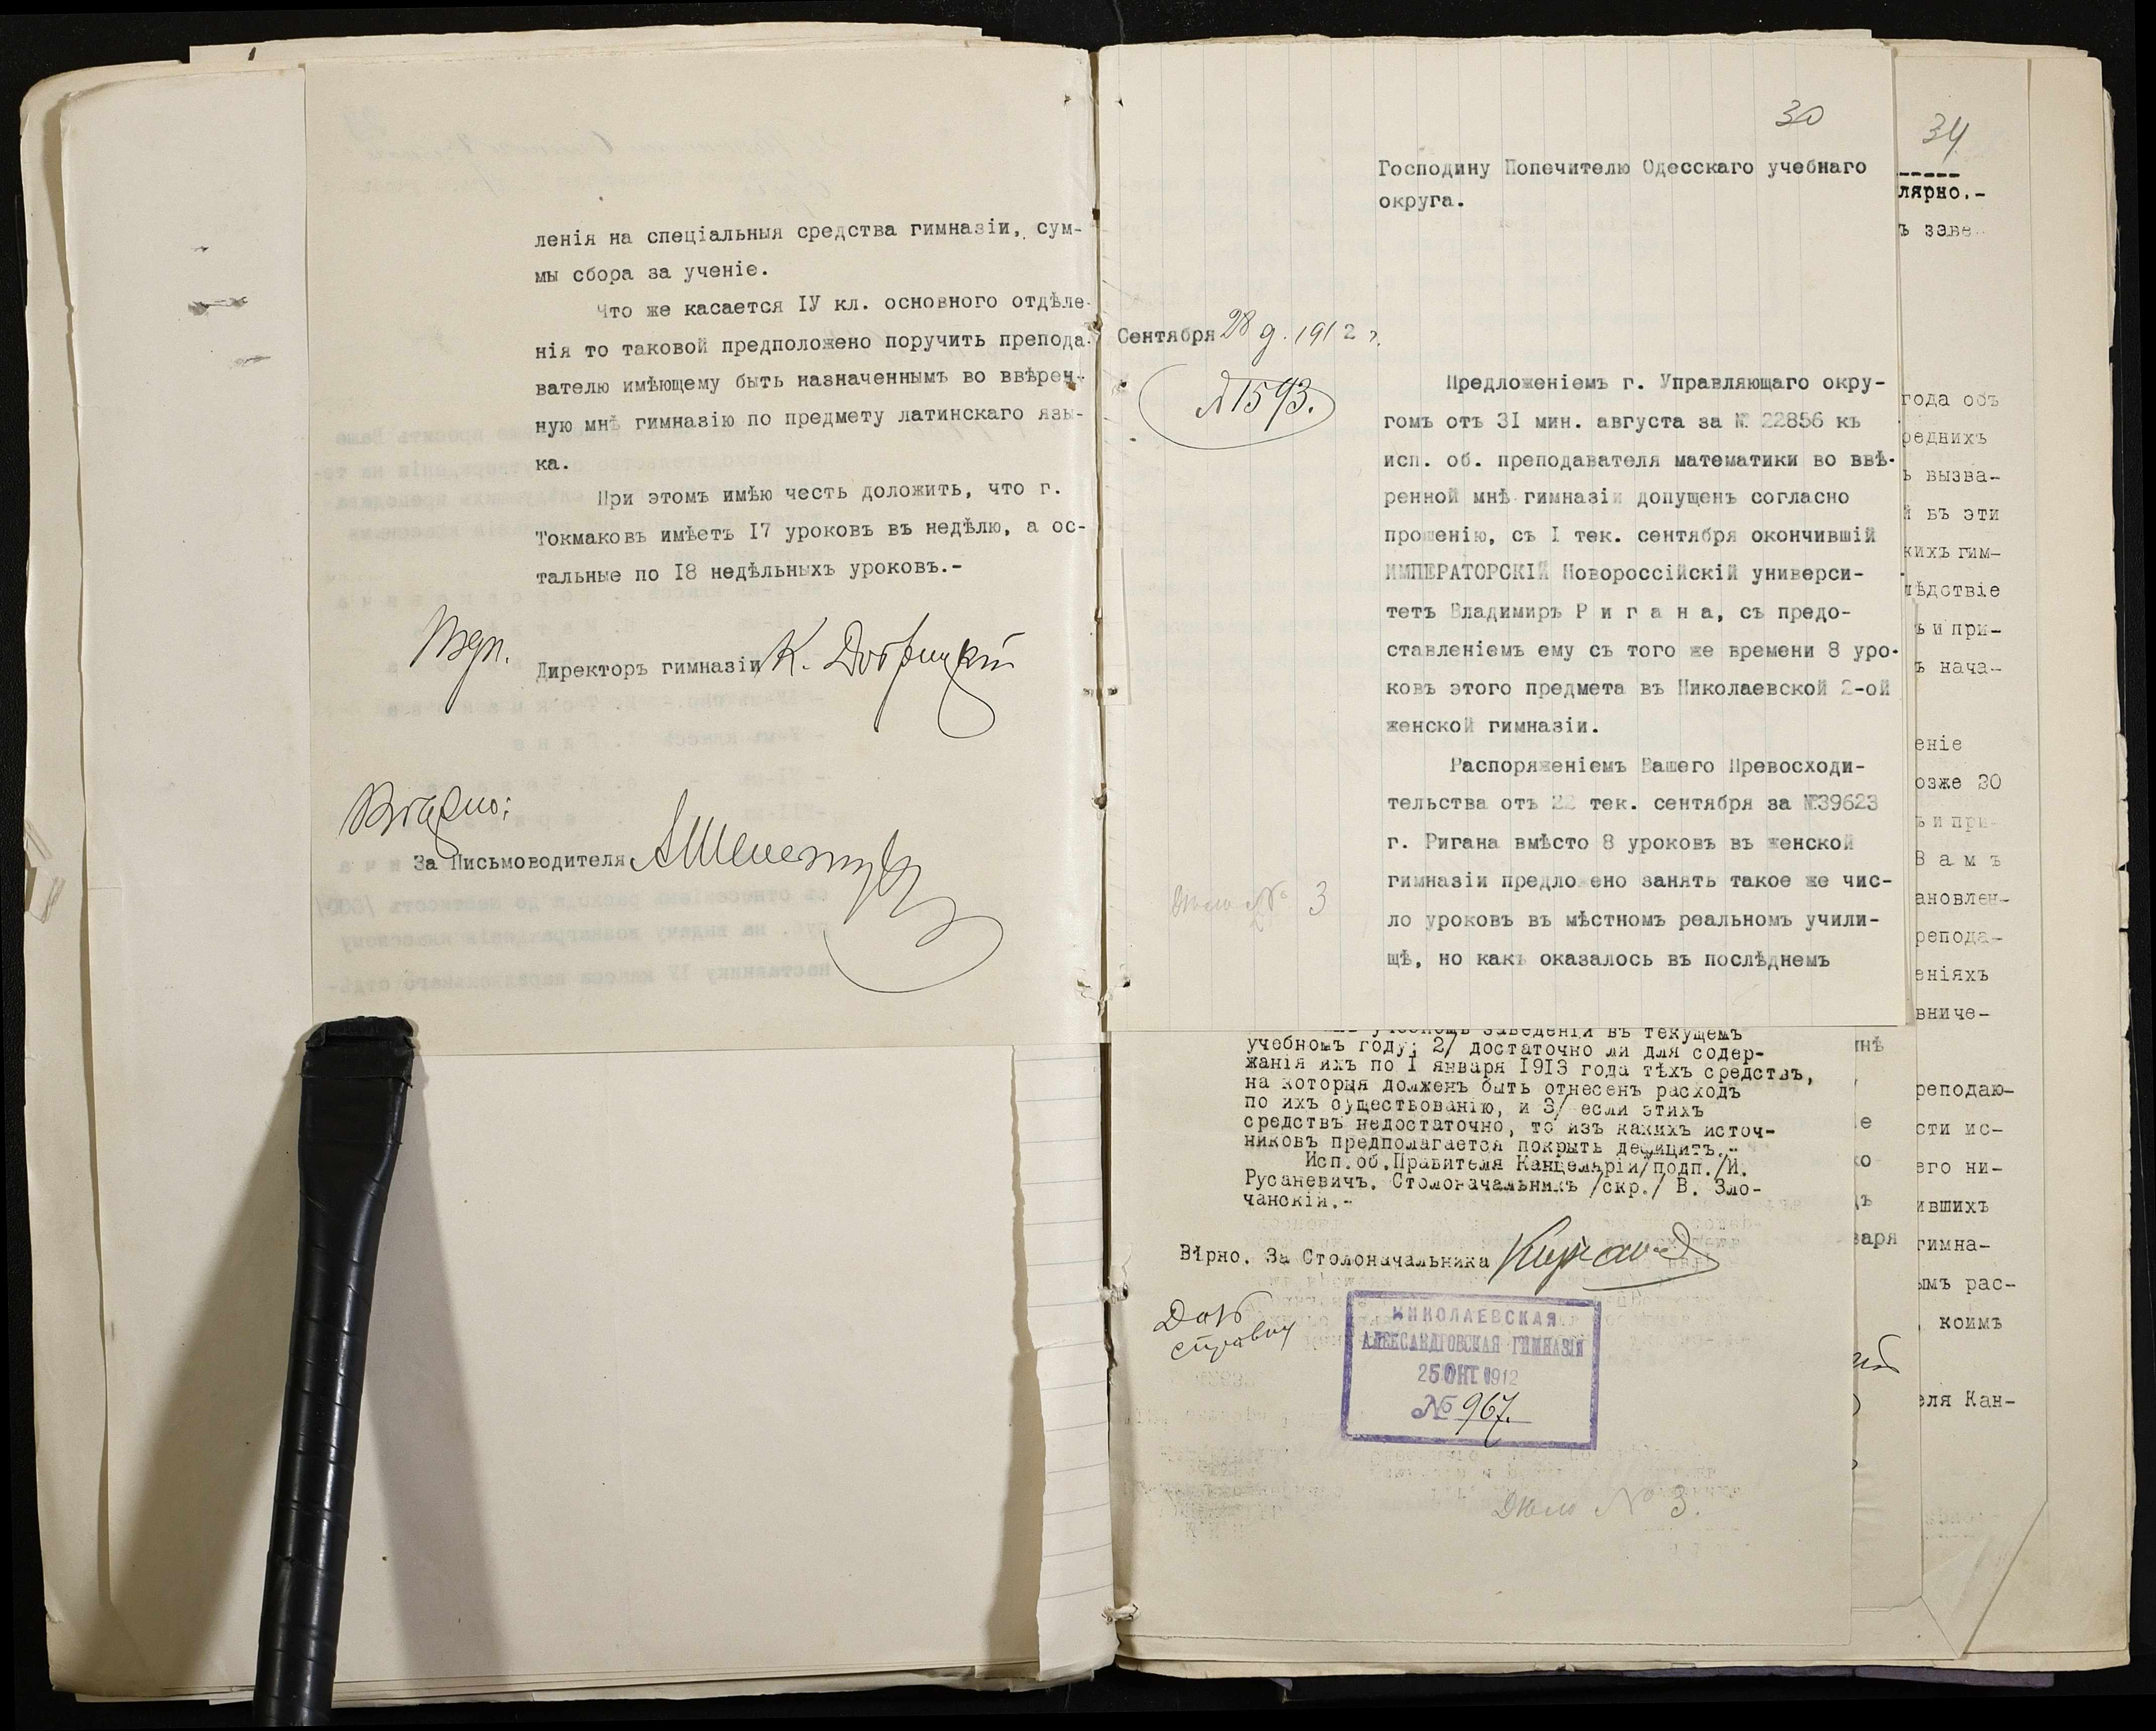 ленія на спеціальныя средства гимназіи, сум-
мы сбора за ученіе.
Что же касается ІУ кл. основного отдѣле-
нія то таковой предположено поручить препода-
вателю имѣющему быть назначеннымъ во ввѣрен-
ную мнѣ гимназію по предмету латинскаго язы-
ка.
При этомъ имѣю честь доложить, что г.
Токмаковъ имѣетъ І7 уроковъ въ недѣлю, а ос-
тальные по І8 недѣльныхъ уроковъ.-
Директоръ гимназіи К.
Вѣрно:
За Письмоводителя
30
Господину Попечителю Одесскаго учебнаго
округа.
Сентября 28 д. 1912 г.
№ 1593.
Предложеніемъ г. Управляющаго окру-
гомъ отъ 3І мин. августа за № 22856 къ
исп. об. преподавателя математики во ввѣ-
ренной мнѣ гимназіи допущенъ согласно
прошенію, съ І тек. сентября окончившій
ИМПЕРАТОРСКІЙ Новороссійскій универси-
тетъ Владимиръ Р и г а н а, съ предо-
ставленіемъ ему съ того же времени 8 уро-
ковъ этого предмета въ Николаевской 2-ой
женской гимназіи.
Распоряженіемъ Вашего Превосходи-
тельства отъ 22 тек. сентября за №39623
г. Ригана вмѣсто 8 уроковъ въ женской
гимназіи предложено занять такое же чис-
ло уроковъ въ мѣстномъ реальномъ учили-
щѣ, но какъ оказалось въ послѣднемъ
Дѣло № 3
учебномъ заведеніи въ текущемъ
учебномъ году; 2/ достаточно ли для содер-
жанія ихъ по І января І9ІЗ года тѣхъ средствъ,
на которыя долженъ быть отнесенъ расходъ
по ихъ существованію, и 3/ если этихъ
средствъ недостаточно, то изъ какихъ источ-
никовъ предполагается покрыть дефицитъ.-
Исп.об.Правителя Канцеляріи/подп./И.
Русаневичъ. Столоначальникъ /скр./ В. Зло-
чанскій.-
Вѣрно. За Столоначальника
Дать
справку
НИКОЛАЕВСКАЯ
АЛЕКСАНДРОВСКАЯ ГИМНАЗІЯ
25 ОКТ 1912
№ 967.
Дѣло № 3.
34
лярно.-
ъ заве
года объ
реднихъ
ъ вызва-
й въ эти
кихъ гим-
лѣдствіе
ъ и при-
ъ нача-
еніе
озже 20
ъ и при-
В а м ъ
ановлен-
репода-
еніяхъ
вниче-
реподаю-
сти ис-
его ни-
ившихъ
гимна-
ымъ рас-
, коимъ
еля Кан-